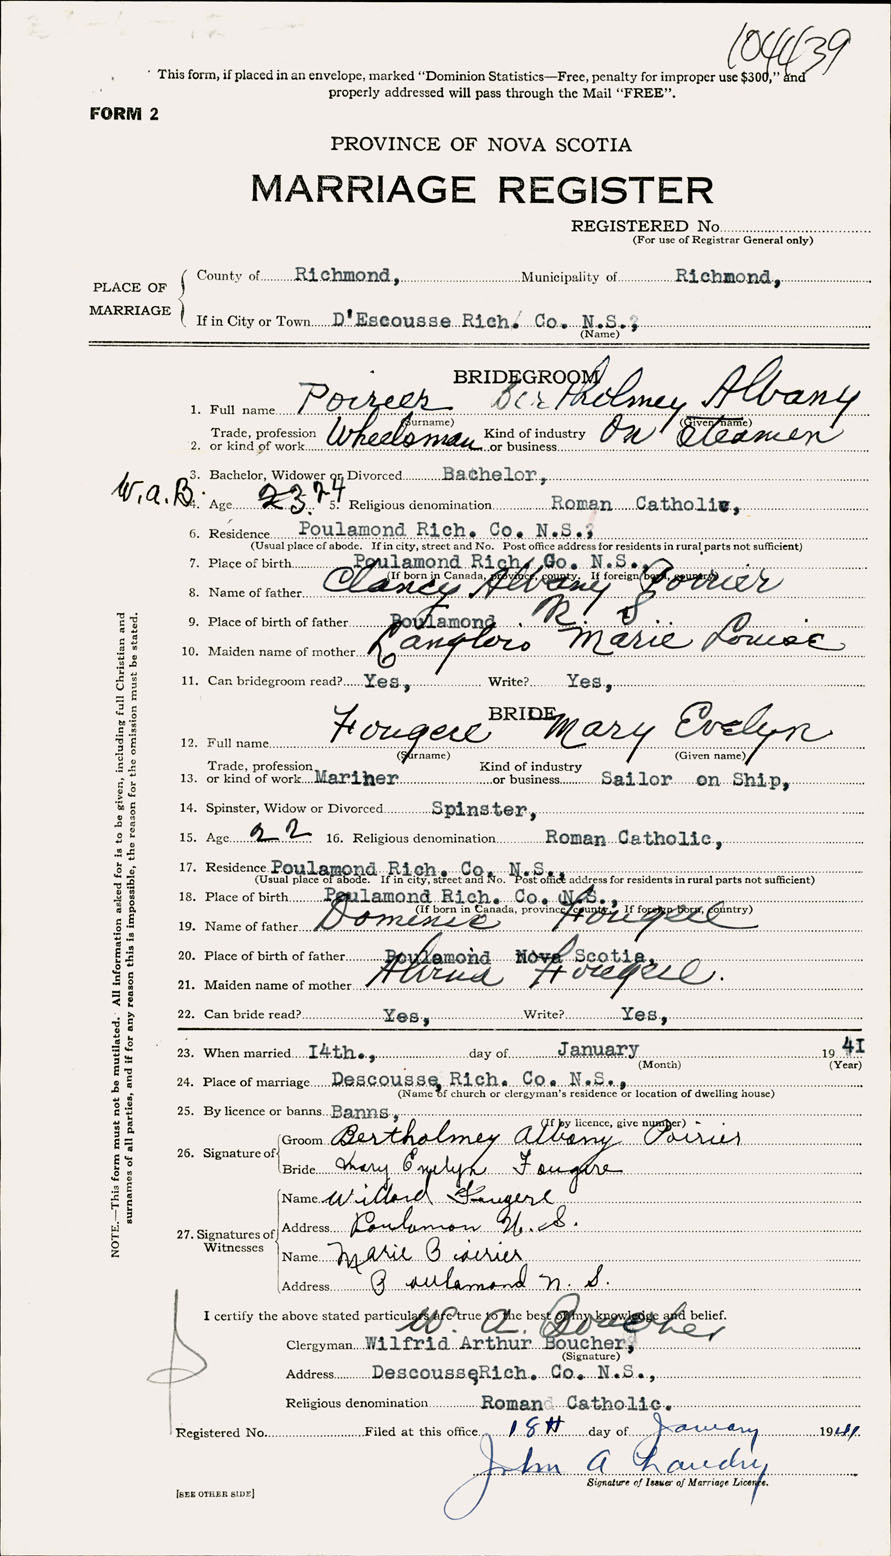 104439
This form, if placed in an envelope, marked "Dominion Statistics—Free, penalty for improper use $300," and
properly addressed will pass through the Mail "FREE".
FORM 2
PROVINCE OF NOVA SCOTIA
MARRIAGE REGISTER
REGISTERED No
(For use of Registrar General only)
PLACE OF MARRIAGE
County of Richmond, Municipality of Richmond,
If in City or Town D'Escousse Rich. Co. N.S.,
(Name)
BRIDEGROOM
1. Full name Poirier Bertholmey Albany
(Surname) (Given name)
2. Trade, profession or kind of work Wheelsman Kind of industry or business On Steamer
3. Bachelor, Widower or Divorced Bachelor,
W.A.B. 4. Age 23. 24 5. Religious denomination Roman Catholic,
6. Residence Poulamond Rich. Co. N.S.,
(Usual place of abode. If in city, street and No. Post office address for residents in rural parts not sufficient)
7. Place of birth Poulamond Rich. Co. N.S.,
(If born in Canada, province, county. If foreign born, country)
8. Name of father Clancy Albany Poirier
9. Place of birth of father Poulamond N S
10. Maiden name of mother Langlois Marie Louise
11. Can bridegroom read? Yes, Write? Yes,
BRIDE
12. Full name Fougere Mary Evelyn
(Surname) (Given name)
13. Trade, profession or kind of work Mariner Kind of industry or business Sailor on Ship,
14. Spinster, Widow or Divorced Spinster,
15. Age 22 16. Religious denomination Roman Catholic,
17. Residence Poulamond Rich. Co. N.S.,
(Usual place of abode. If in city, street and No. Post office address for residents in rural parts not sufficient)
18. Place of birth Poulamond Rich. Co. N.S.,
(If born in Canada, province, county. If foreign born, country)
19. Name of father Dominic Fougere
20. Place of birth of father Poulamond Nova Scotia,
21. Maiden name of mother Alvina Fougere.
22. Can bride read? Yes, Write? Yes,
23. When married I4th., day of January 19 4I
(Month) (Year)
24. Place of marriage Descousse, Rich. Co. N.S.,
(Name of church or clergyman's residence or location of dwelling house)
25. By licence or banns Banns,
(If by licence, give number)
26. Signature of Groom Bertholmey Albany Poirier
Bride Mary Evelyn Fougere
27. Signatures of Witnesses Name Willard Fougere
Address Poulamon N. S.
Name Marie Poirier
Address Poulamond N. S.
I certify the above stated particulars are true to the best of my knowledge and belief.
W. A. Boucher
Clergyman Wilfrid Arthur Boucher,
(Signature)
Address Descousse, Rich. Co. N.S.,
Religious denomination Roman Catholic.
Registered No. Filed at this office 18th day of January 1941
John A Landry
Signature of Issuer of Marriage Licence.
[SEE OTHER SIDE]
NOTE.—This form must not be mutilated. All information asked for is to be given, including full Christian and
surnames of all parties, and if for any reason this is impossible, the reason for the omission must be stated.